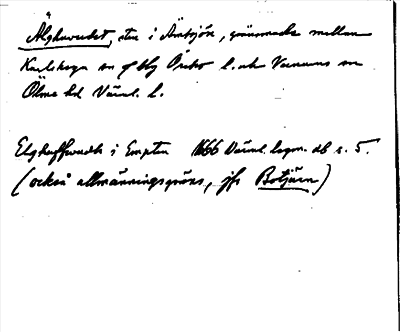 Älghuvudet, sten i Åntsjön, gränsmärke mellan
Karlskoga sn o/bg Örebro l. och Varnums sn
Ölme hd Värml. l.
Elghuffwudh i Empten 1666 Värml. legm. db s. 5.
(också allmänningsgräns, jfr Botjärn)